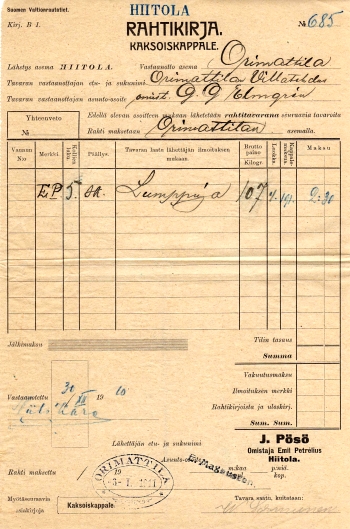 Suomen Valtionrautatiet.
HIITOLA
Kirj. B 1.
№ 685
RAHTIKIRJA.
KAKSOISKAPPALE.
Lähetys asema HIITOLA. Vastaanotto asema Orimattila
Tavaran vastaanottajan etu- ja sukunimi Orimattila Villatehdas
Tavaran vastaanottajan asunto-osoite omist. G G Elmgrén
Yhteenveto
№
Edellä olevan osoitteen mukaan lähetetään rahtitavarana seuraavia tavaroita
Rahti maksetaan Orimattilan asemalla.
Vaunun No
Merkki.
Kollien luku.
Päällys.
Tavaran laatu lähettäjän ilmoituksen mukaan.
Brutto paino Kilogr.
Luokka.
Kappalemaksu.
Maksu
EP 5. Lumppuja 107 2:30
Jälkimaksu
Tilin tasaus
Summa
Vakuutusmaksu
Ilmoituksen merkki
Rahtikirjoista ja uloskirj.
Sum. Sum.
Vastaanotettu 30 XII 1910
Lähettäjän etu- ja sukunimi
Asunto-osoite
J. Pösö
Omistaja Emil Petrelius
Hiitola.
Rahti maksettu
ORIMATTILA
m:kaa p:niä.
kop.
Myötäseuraavia asiakirjoja
Kaksoiskappale.
Tavara saatu, kuitataan: